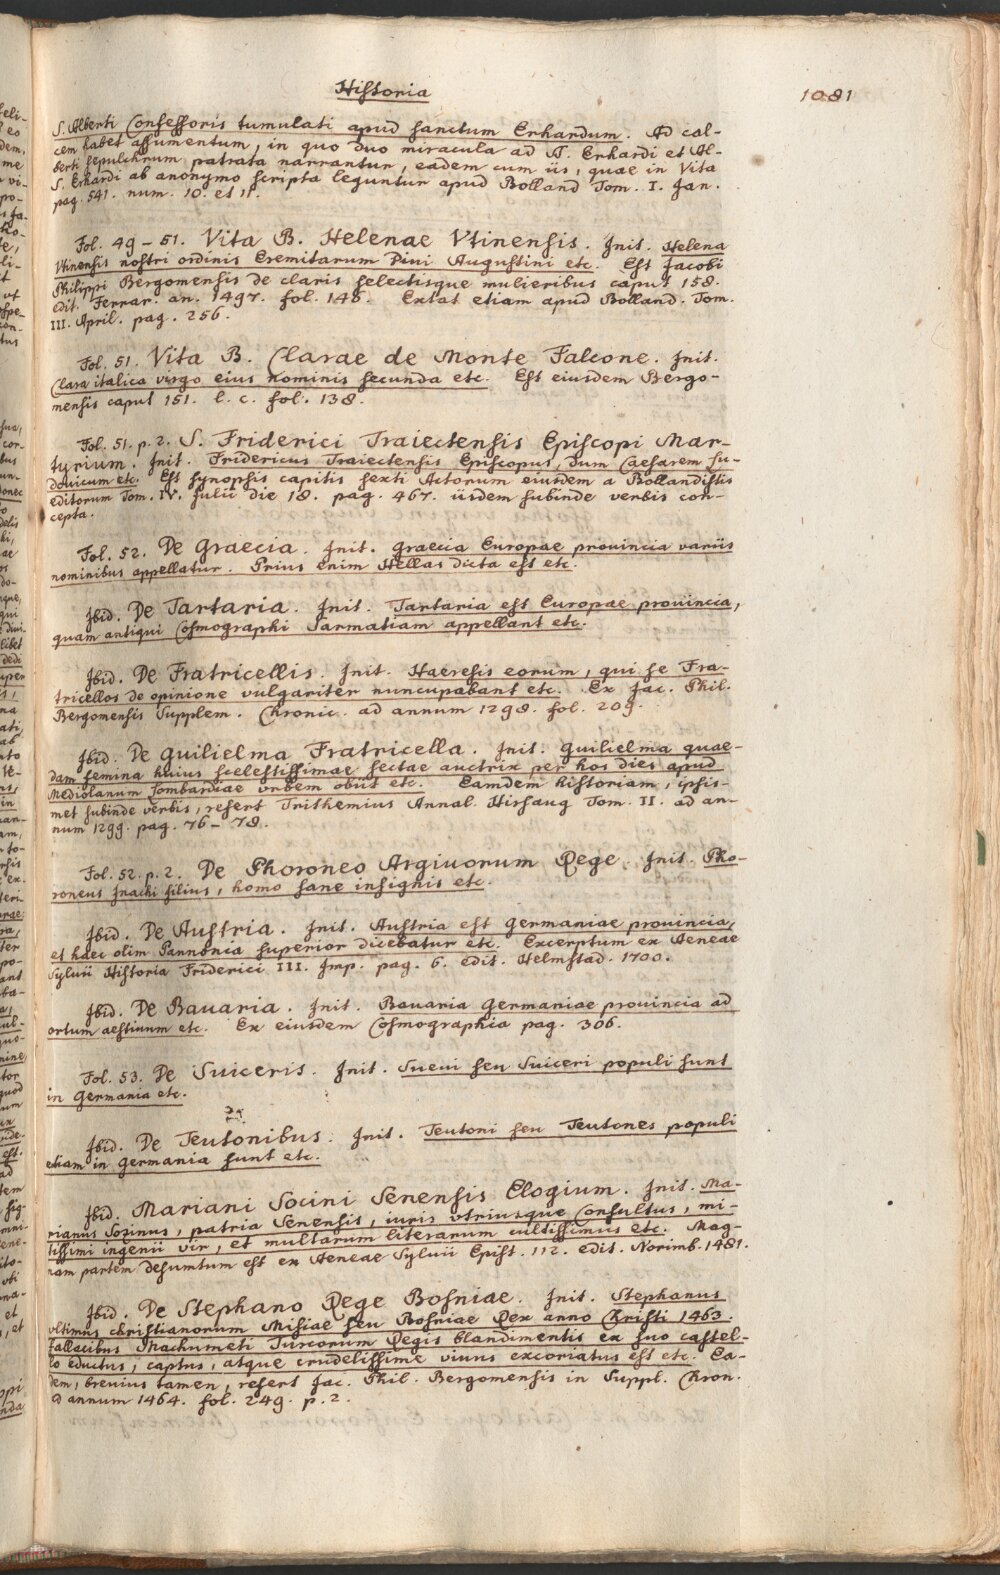 Historia
1081
S. Alberti Confessoris tumulati apud sanctum Erhardum. Ad cal-
cem habet assumentum, in quo duo miracula ad S. Erhardi et Al-
berti sepulchrum patrata narrantur, eadem cum iis, quae in Vita
S. Erhardi ab anonymo scripta leguntur apud Bolland Tom. I. Jan.
pag. 541. num. 10. et 11.
Fol. 49 – 51. Vita B. Helenae Vtinensis. Init. Helena
Vtinensis nostri ordinis Eremitarum Diui Augustini etc. Est Jacobi
Philippi Bergomensis de claris selectisque mulieribus caput 158.
edit. Ferrar. an. 1497. fol. 146. Extat etiam apud Bolland. Tom.
III. April. pag. 256.
Fol. 51. Vita B. Clarae de Monte Falcone. Init.
Clara italica virgo eius nominis secunda etc. Est eiusdem Bergo-
mensis caput 151. l. c. fol. 138.
Fol. 51. p. 2. S. Friderici Traiectensis Episcopi Mar-
tyrium. Init. Fridericus Traiectensis Episcopus, dum Caesarem Lu-
douicum etc. Est synopsis capitis sexti Actorum eiusdem a Bollandistis
editorum Tom. IV. Julii die 18. pag. 467. iisdem subinde verbis con-
cepta.
Fol. 52. De Graecia. Init. Graecia Europae prouincia variis
nominibus appellatur. Prius enim Hellas dicta est etc.
Ibid. De Tartaria. Init. Tartaria est Europae prouincia,
quam antiqui Cosmographi Sarmatiam appellant etc.
Ibid. De Fratricellis. Init. Haeresis eorum, qui se Fra-
tricellos de opinione vulgariter nuncupabant etc. Ex Jac. Phil.
Bergomensis Supplem. Chronic. ad annum 1298. fol. 209.
Ibid. De Guilielma Fratricella. Init. Guilielma quae-
dam femina huius scelestissimae sectae auctrix per hos dies apud
Mediolanum Lombardiae urbem obiit etc. Eamdem historiam, ipsis-
met subinde verbis, refert Trithemius Annal. Hirsaug Tom. II. ad an-
num 1299. pag. 76 – 78.
Fol. 52. p. 2. De Phoroneo Argiuorum Rege. Init. Pho-
roneus Inachi filius, homo sane insignis etc.
Ibid. De Austria. Init. Austria est Germaniae prouincia,
et haec olim Pannonia superior dicebatur etc. Excerptum ex Aeneae
Syluii Historia Friderici III. Imp. pag. 6. edit. Helmstad. 1700.
Ibid. De Bauaria. Init. Bauaria Germaniae prouincia ad
ortum aestiuum etc. Ex eiusdem Cosmographia pag. 306.
Fol. 53. De Suiceris. Init. Sueui seu Suiceri populi sunt
in Germania etc.
Ibid. De Teutonibus. Init. Teutoni seu Teutones populi
etiam in Germania sunt etc.
Ibid. Mariani Socini Senensis Elogium. Init. Ma-
rianus Sozinus, patria Senensis, iuris vtriusque Consultus, mi-
tissimi ingenii vir, et multarum literarum cultissimus etc. Mag-
nam partem desumtum est ex Aeneae Syluii Epist. 112. edit. Norimb. 1481.
Ibid. De Stephano Rege Bosniae. Init. Stephanus
vltimus christianorum Misiae seu Bosniae Rex anno Christi 1463.
fallacibus Machumeti Turcorum Regis blandimentis ex suo castel-
lo eductus, captus, atque crudelissime viuus excoriatus est etc. Ea-
dem, breuius tamen, refert Jac. Phil. Bergomensis in Suppl. Chron.
ad annum 1464. fol. 249. p. 2.